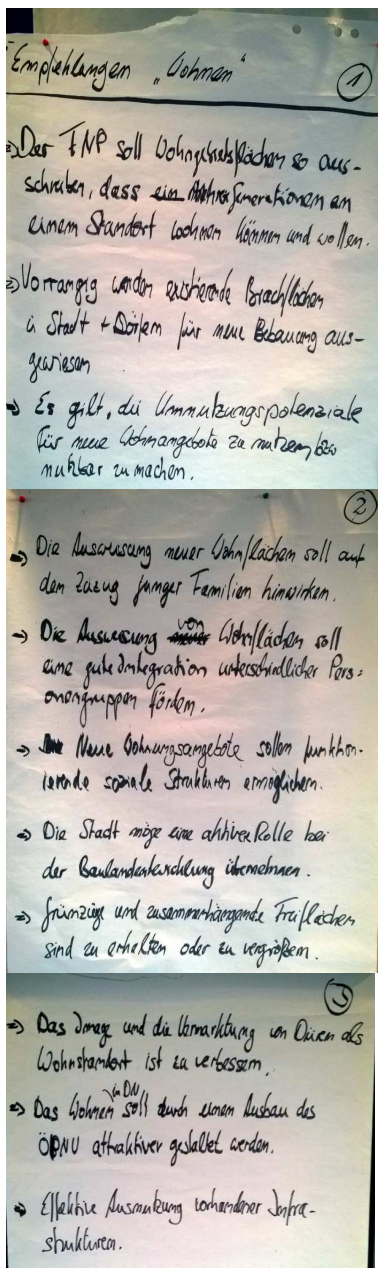 Empfehlungen „Wohnen“ 1
=> Der FNP soll Wohngebietsflächen so aus-
schreiben, dass ein Mehrgenerationen an
einem Standort wohnen können und wollen.
=> Vorrangig werden existierende Brachflächen
in Stadt + Dörfern für neue Bebauung aus-
gewiesen
=> Es gilt, die Umnutzungspotenziale
für neue Wohnangebote zu nutzen bzw
nutzbar zu machen.
2
=> Die Ausweisung neuer Wohnflächen soll auf
den Zuzug junger Familien hinwirken.
=> Die Ausweisung von Wohnflächen soll
eine gute Integration unterschiedlicher Pers=
onengruppen fördern.
=> Neue Wohnungsangebote sollen funktion-
ierende soziale Strukturen ermöglichen.
=> Die Stadt möge eine aktivere Rolle bei
der Baulandentwicklung übernehmen.
=> Grünzüge und zusammenhängende Freiflächen
sind zu erhalten oder zu vergrößern.
3
=> Das Image und die Vermarktung von Düren als
Wohnstandort ist zu verbessern.
=> Das Wohnen in DN soll durch einen Ausbau des
ÖPNV attraktiver gestaltet werden.
=> Effektive Ausnutzung vorhandener Infra-
strukturen.